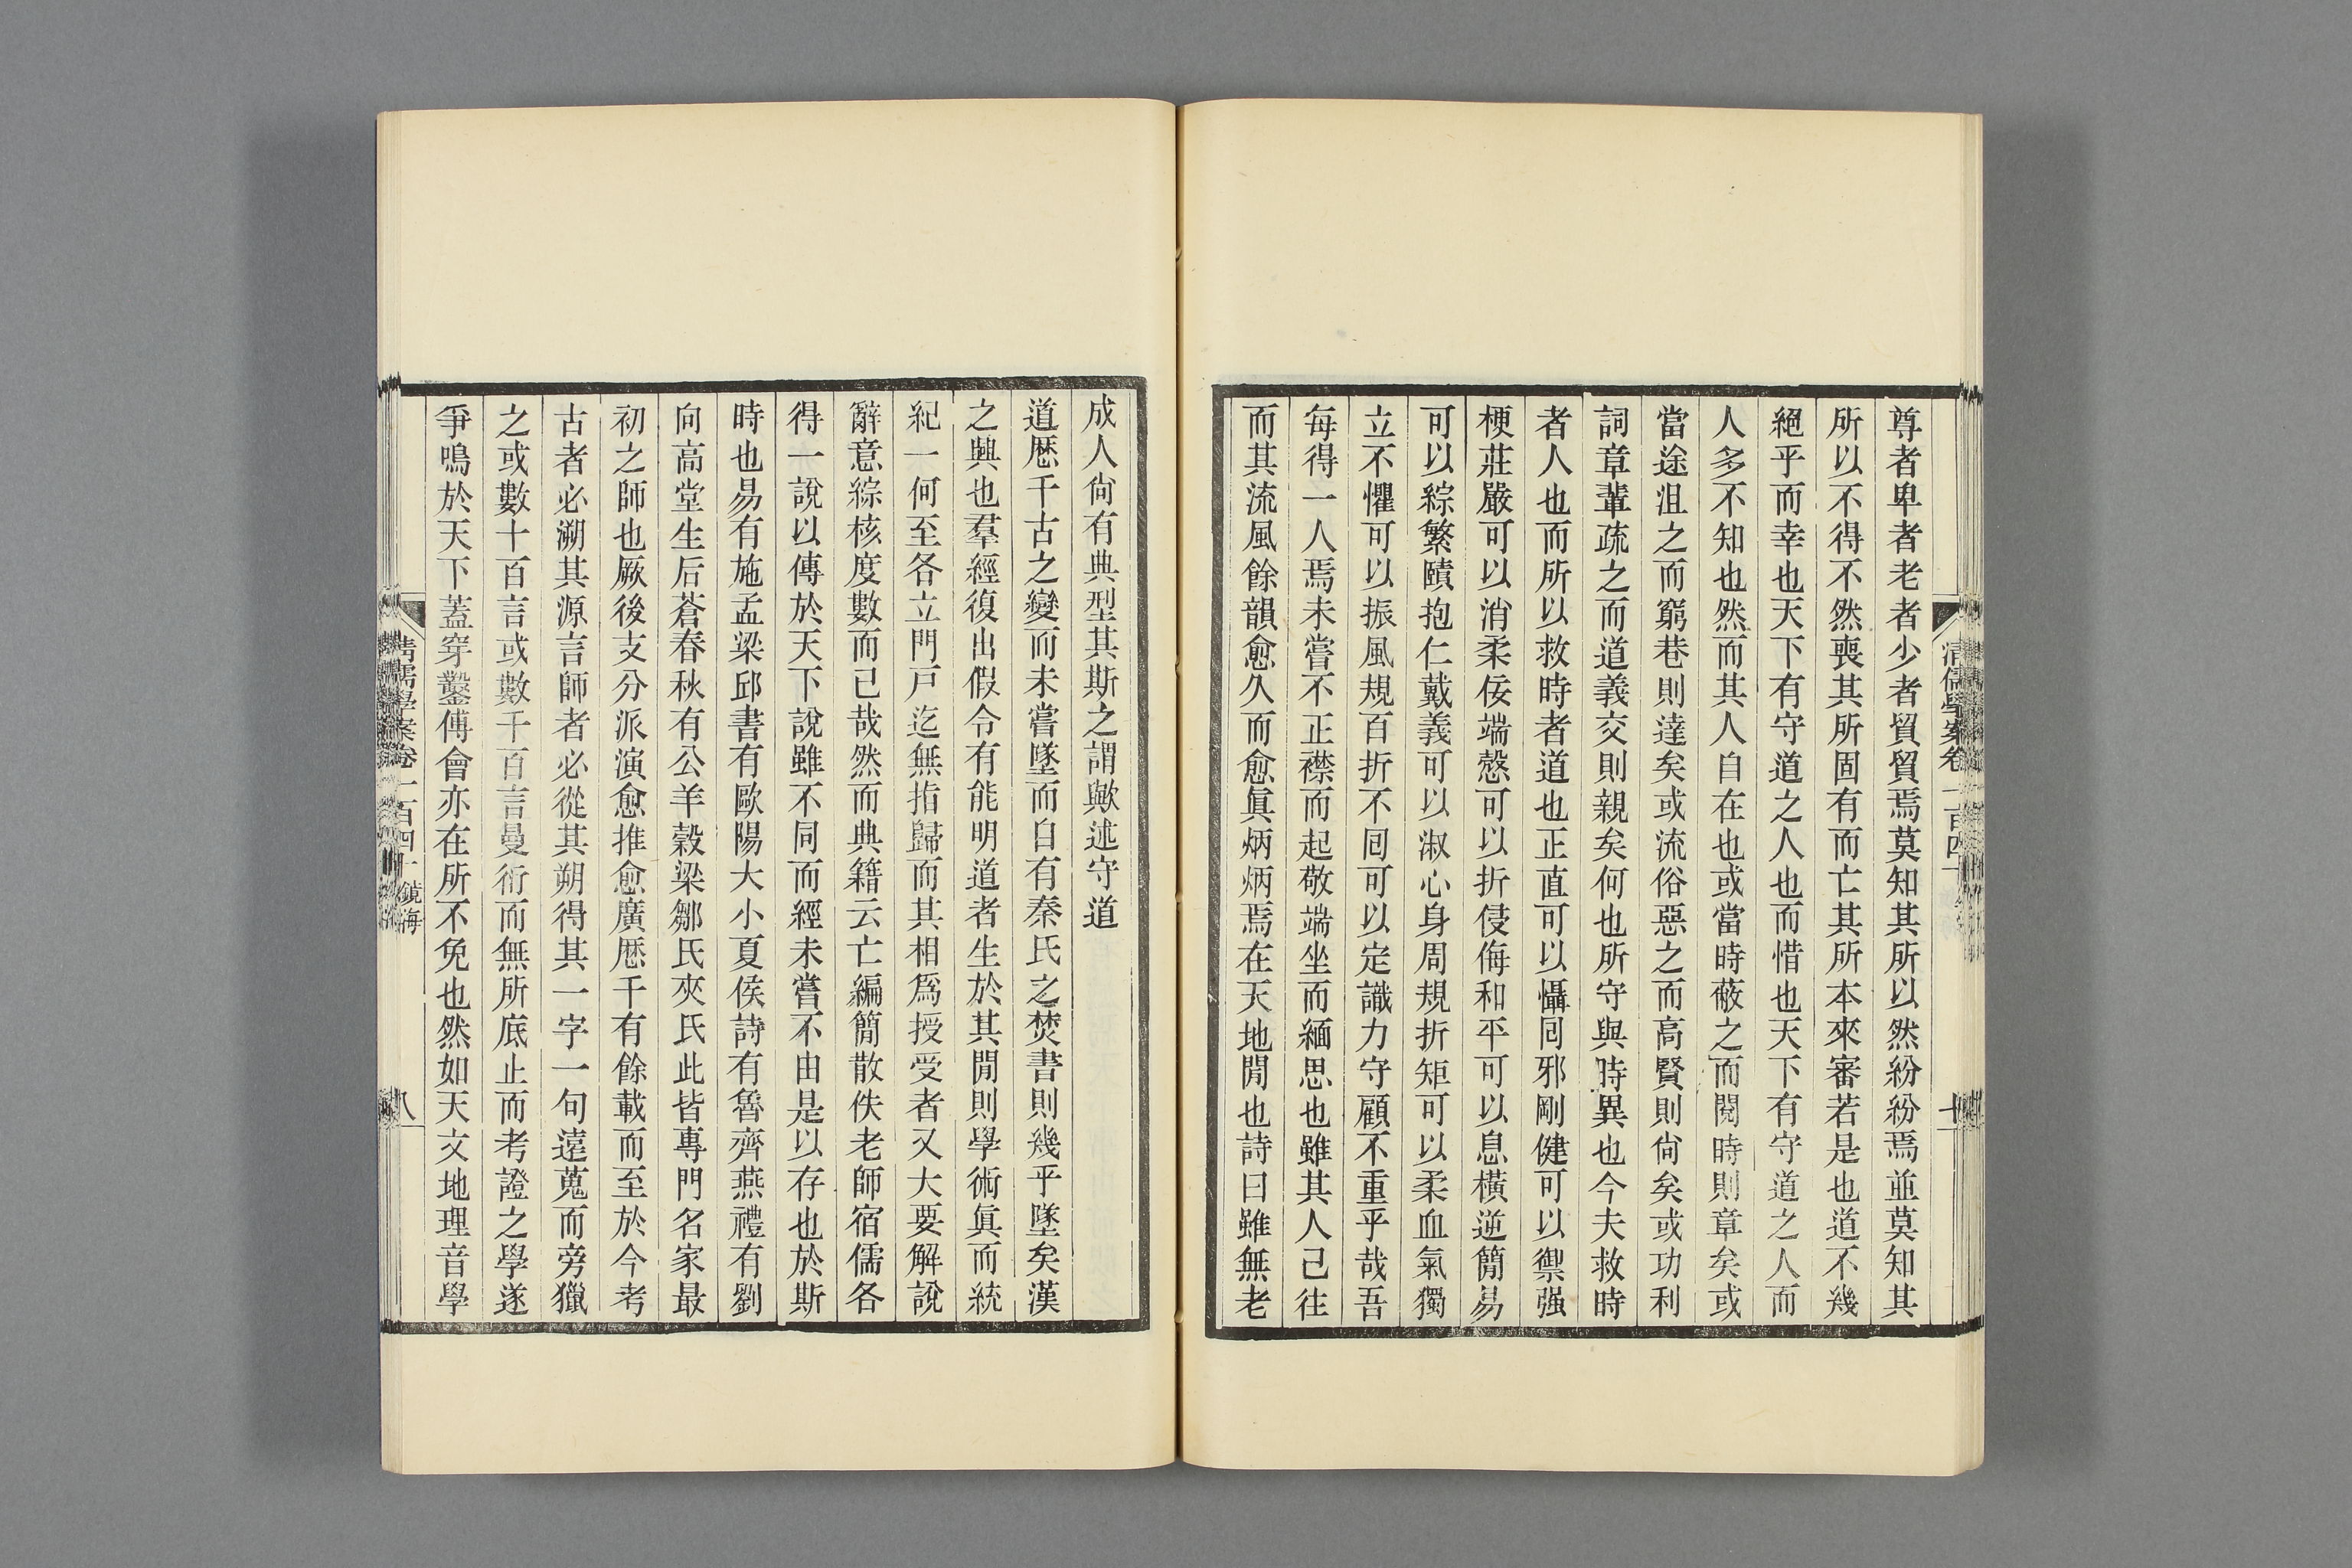 清儒學案卷一百四十
尊者卑者老者少者貿貿焉莫知其所以然紛紛焉並莫知其
所以不得不然喪其所固有而亡其所本來審若是也道不幾
絕乎而幸也天下有守道之人也而惜也天下有守道之人而
人多不知也然而其人自在也或當時蔽之而閱時則章矣或
當途沮之而窮巷則達矣或流俗惡之而高賢則尙矣或功利
詞章輩疏之而道義交則親矣何也所守與時異也今夫救時
者人也而所以救時者道也正直可以懾囘邪剛健可以禦强
梗莊嚴可以消柔佞端慤可以折侵侮和平可以息橫逆簡易
可以綜繁賾抱仁戴義可以淑心身周規折矩可以柔血氣獨
立不懼可以振風規百折不囘可以定識力守顧不重乎哉吾
每得一人焉未嘗不正襟而起敬端坐而緬思也雖其人已往
而其流風餘韻愈久而愈眞炳炳焉在天地閒也詩曰雖無老
成人尙有典型其斯之謂歟述守道
道歷千古之變而未嘗墜而自有秦氏之焚書則幾乎墜矣漢
之興也羣經復出假令有能明道者生於其閒則學術眞而統
紀一何至各立門戸迄無指歸而其相爲授受者又大要解說
辭意綜核度數而已哉然而典籍云亡編簡散佚老師宿儒各
得一說以傳於天下說雖不同而經未嘗不由是以存也於斯
時也易有施孟梁邱書有歐陽大小夏侯詩有魯齊燕禮有劉
向高堂生后蒼春秋有公羊穀梁鄒氏夾氏此皆專門名家最
初之師也厥後支分派演愈推愈廣歷千有餘載而至於今考
古者必溯其源言師者必從其朔得其一字一句遠蒐而旁獵
之或數十百言或數千百言曼衍而無所底止而考證之學遂
爭鳴於天下蓋穿鑿傅會亦在所不免也然如天文地理音學
清儒學案卷一百四十 鏡海
八